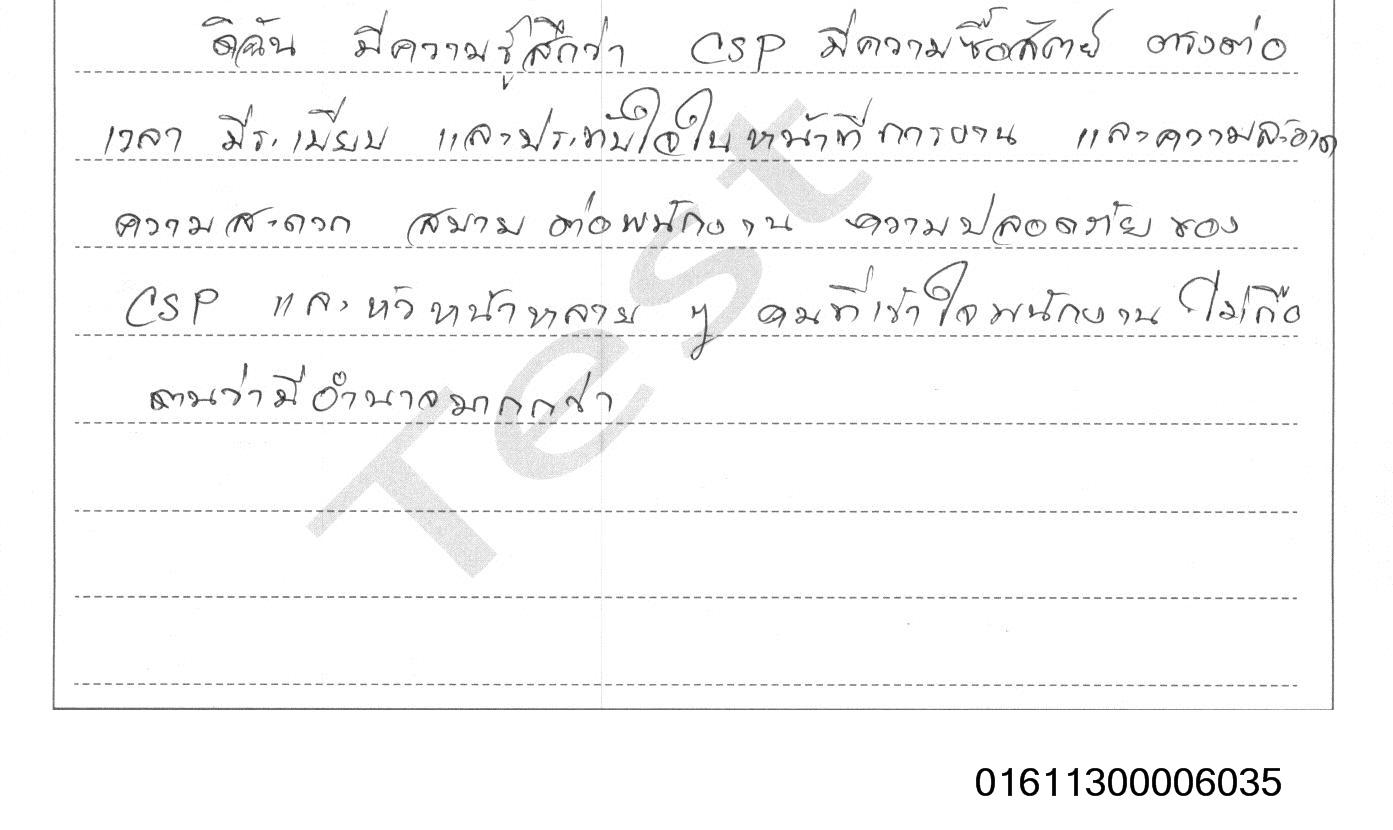 ดิฉัน มีความรู้สึกว่า CSP มีความซื่อสัตย์ ตรงต่อ
เวลา มีระเบียบ และประทับใจในหน้าที่การงาน และความสะอาด
ความสะดวก สบาย ต่อพนักงาน ความปลอดภัยของ
CSP และหัวหน้าหลาย ๆ คนที่เข้าใจพนักงาน ไม่ถือ
ตนว่ามีอำนาจมากกว่า
Test
01611300006035